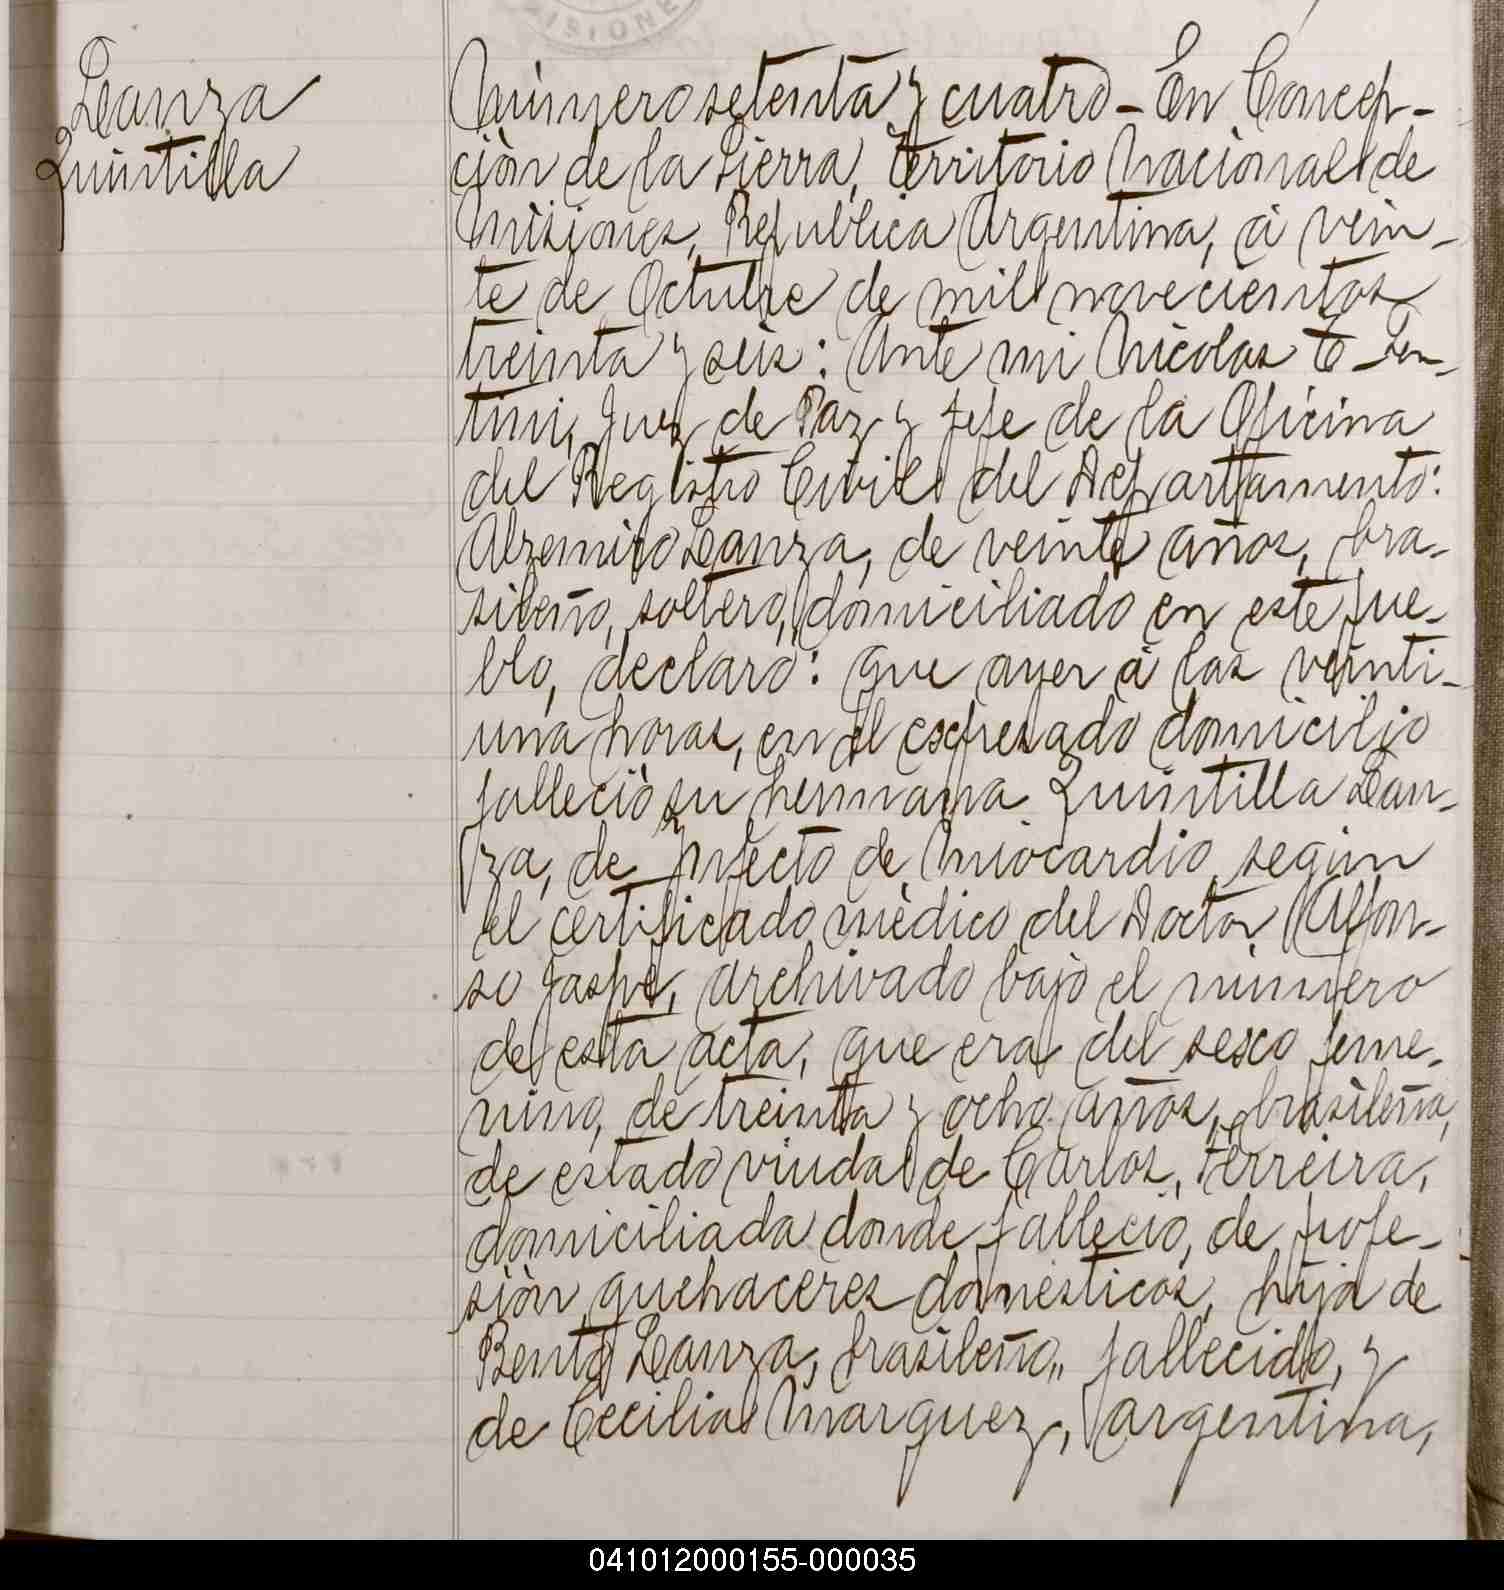 ISIONE
Leanza
Quintilla
Número setenta y cuatro - En Concep-
ciòn de la Sierra, Territorio Nacional de
Misiones, Republica Argentina, à vein-
te de Octubre de mil novecientos
treinta y seis: Ante mi Nicolas E.
tini, Juez de Paz y Jefe de la Oficina
del Registro Civil del Departamento:
Alzemiro Leanza, de veinte años, bra-
sileño, soltero, domiciliado en este pue-
blo, declarò: que ayer à las veinti-
una horas, en el expresado domicilio
falleciò su hermana Quintilla Lean-
za, de Infecto de Miocardio, segùn
el certificado mèdico del Doctor Alfon-
so Jaspe, archivado bajo el nùmero
de esta acta, que era del sexo feme-
nino, de treinta y ocho años, brasileña,
de estado viuda de Carlos Ferreira,
domiciliada donde falleciò, de profe-
siòn quehaceres domèsticos, hija de
Bento Leanza, brasileño, fallecido, y
de Cecilia Marquez, argentina,
041012000155-000035